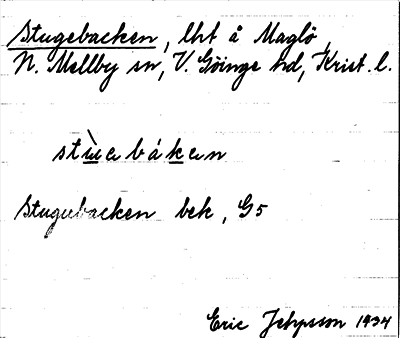 Stugebacken, lht å Maglö,
N. Mellby sn, V. Göinge hd, Krist. l.
stùɐbákɐn
Stugubacken bek, G5
Eric Jehpsson 1934